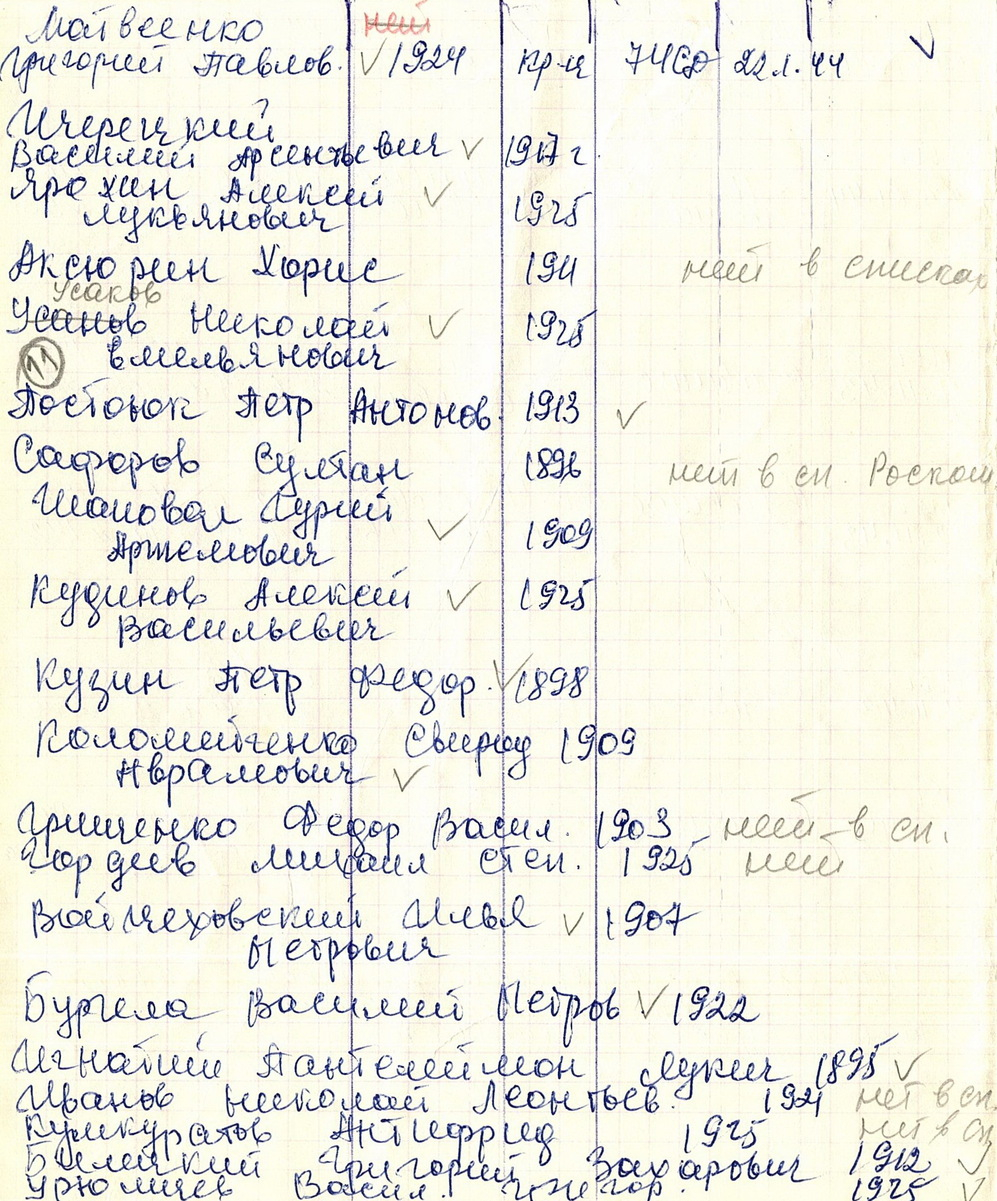 Матвеенко нет
Григорий Павлов. 1924 кр-ц 74СД 22.1.44
Ичерецкий
Василий Арсентьевич 1917 г
Ярохин Алексей 1925
Лукьянович
Аксюрин Хорис 1911 нет в списках
Усаков
Усанов Николай 1925
Емельянович
11
Постоюк Петр Антонов. 1913
Сафоров Султан 1896 нет в сп.
Шаповал Гурий
Артемович 1909
Кудинов Алексей 1925
Васильевич
Кузин Петр Федор. 1898
Коломейченко 1909
Аврамович
Грищенко Федор Васил. 1903 нет в сп.
Гордиев Михаил Степ. 1925 нет
Войцеховский Илья 1907
Петрович
Бургела Василий Петров 1922
Игнатий Пантелеймон Лукич 1895
Иванов Николай Леонтьев. 1921 нет в сп.
Кулкуратов 1925 нет в сп
Билецкий Григорий Захарович 1912
Васил. 1925